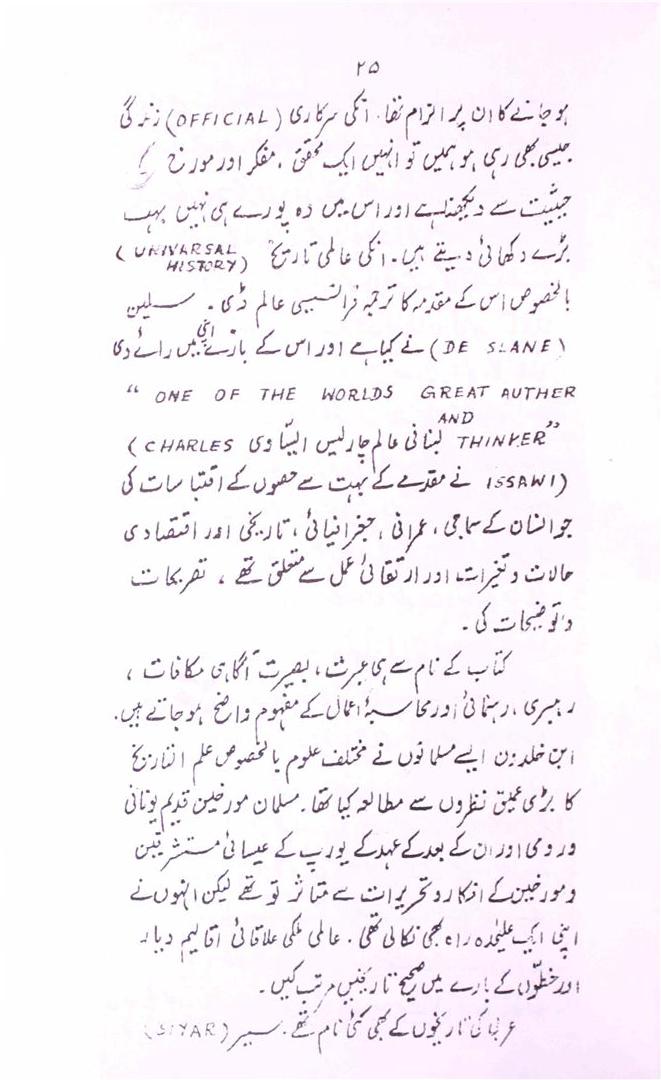 ۲۵
ہو جانے کا ان پر الزام تھا۔ انکی سرکاری (OFFICIAL) زندگی
جیسی بھی رہی ہو ہمیں تو انہیں ایک محقق، مفکر اور مورخ کی
حیثیت سے دیکھنا ہے اور اس میں وہ پورے ہی نہیں بہت
بڑے دکھائی دیتے ہیں۔ انکی عالمی تاریخ (UNIVARSAL HISTORY)
بالخصوص اس کے مقدمہ کا ترجمہ فرانسیسی عالم ڈی۔ سلین
(DE SLANE) نے کیا ہے اور اس کے بارے میں اپنی رائے دی
“ ONE OF THE WORLDS GREAT AUTHER
AND THINKER” لبنانی عالم چارلیس ایسّاوی (CHARLES
ISSAWI) نے مقدمے کے بہت سے حصوں کے اقتباسات کی
جو انسان کے سماجی، عمرانی، جغرافیائی، تاریخی اور اقتصادی
حالات و تغیرات، اور ارتقائی عمل سے متعلق تھے، تصریحات
و توضیحات کی۔
کتاب کے نام سے ہی عبرت، بصیرت آگاہی مکافات،
رہبری، رہنمائی اور محاسبۂ اعمال کے مفہوم واضح ہو جاتے ہیں۔
ابن خلدون ایسے مسلمانوں نے مختلف علوم بالخصوص علم التاریخ
کا بڑی عمیق نظروں سے مطالعہ کیا تھا۔ مسلمان مورخین قدیم یونانی
و رومی اور ان کے بعد کے عہد کے یورپ کے عیسائی مستشرقین
و مورخین کے افکار و تحریرات سے متاثر تو تھے لیکن انہوں نے
اپنی ایک علیٰحدہ راہ بھی نکالی تھی۔ عالمی ملکی علاقائی اقالیم دیار
اور خطّوں کے بارے میں صحیح تاریخیں مرتب کیں۔
عربی کی تاریخوں کے بھی کئی نام تھے۔ سیر (SIYAR)